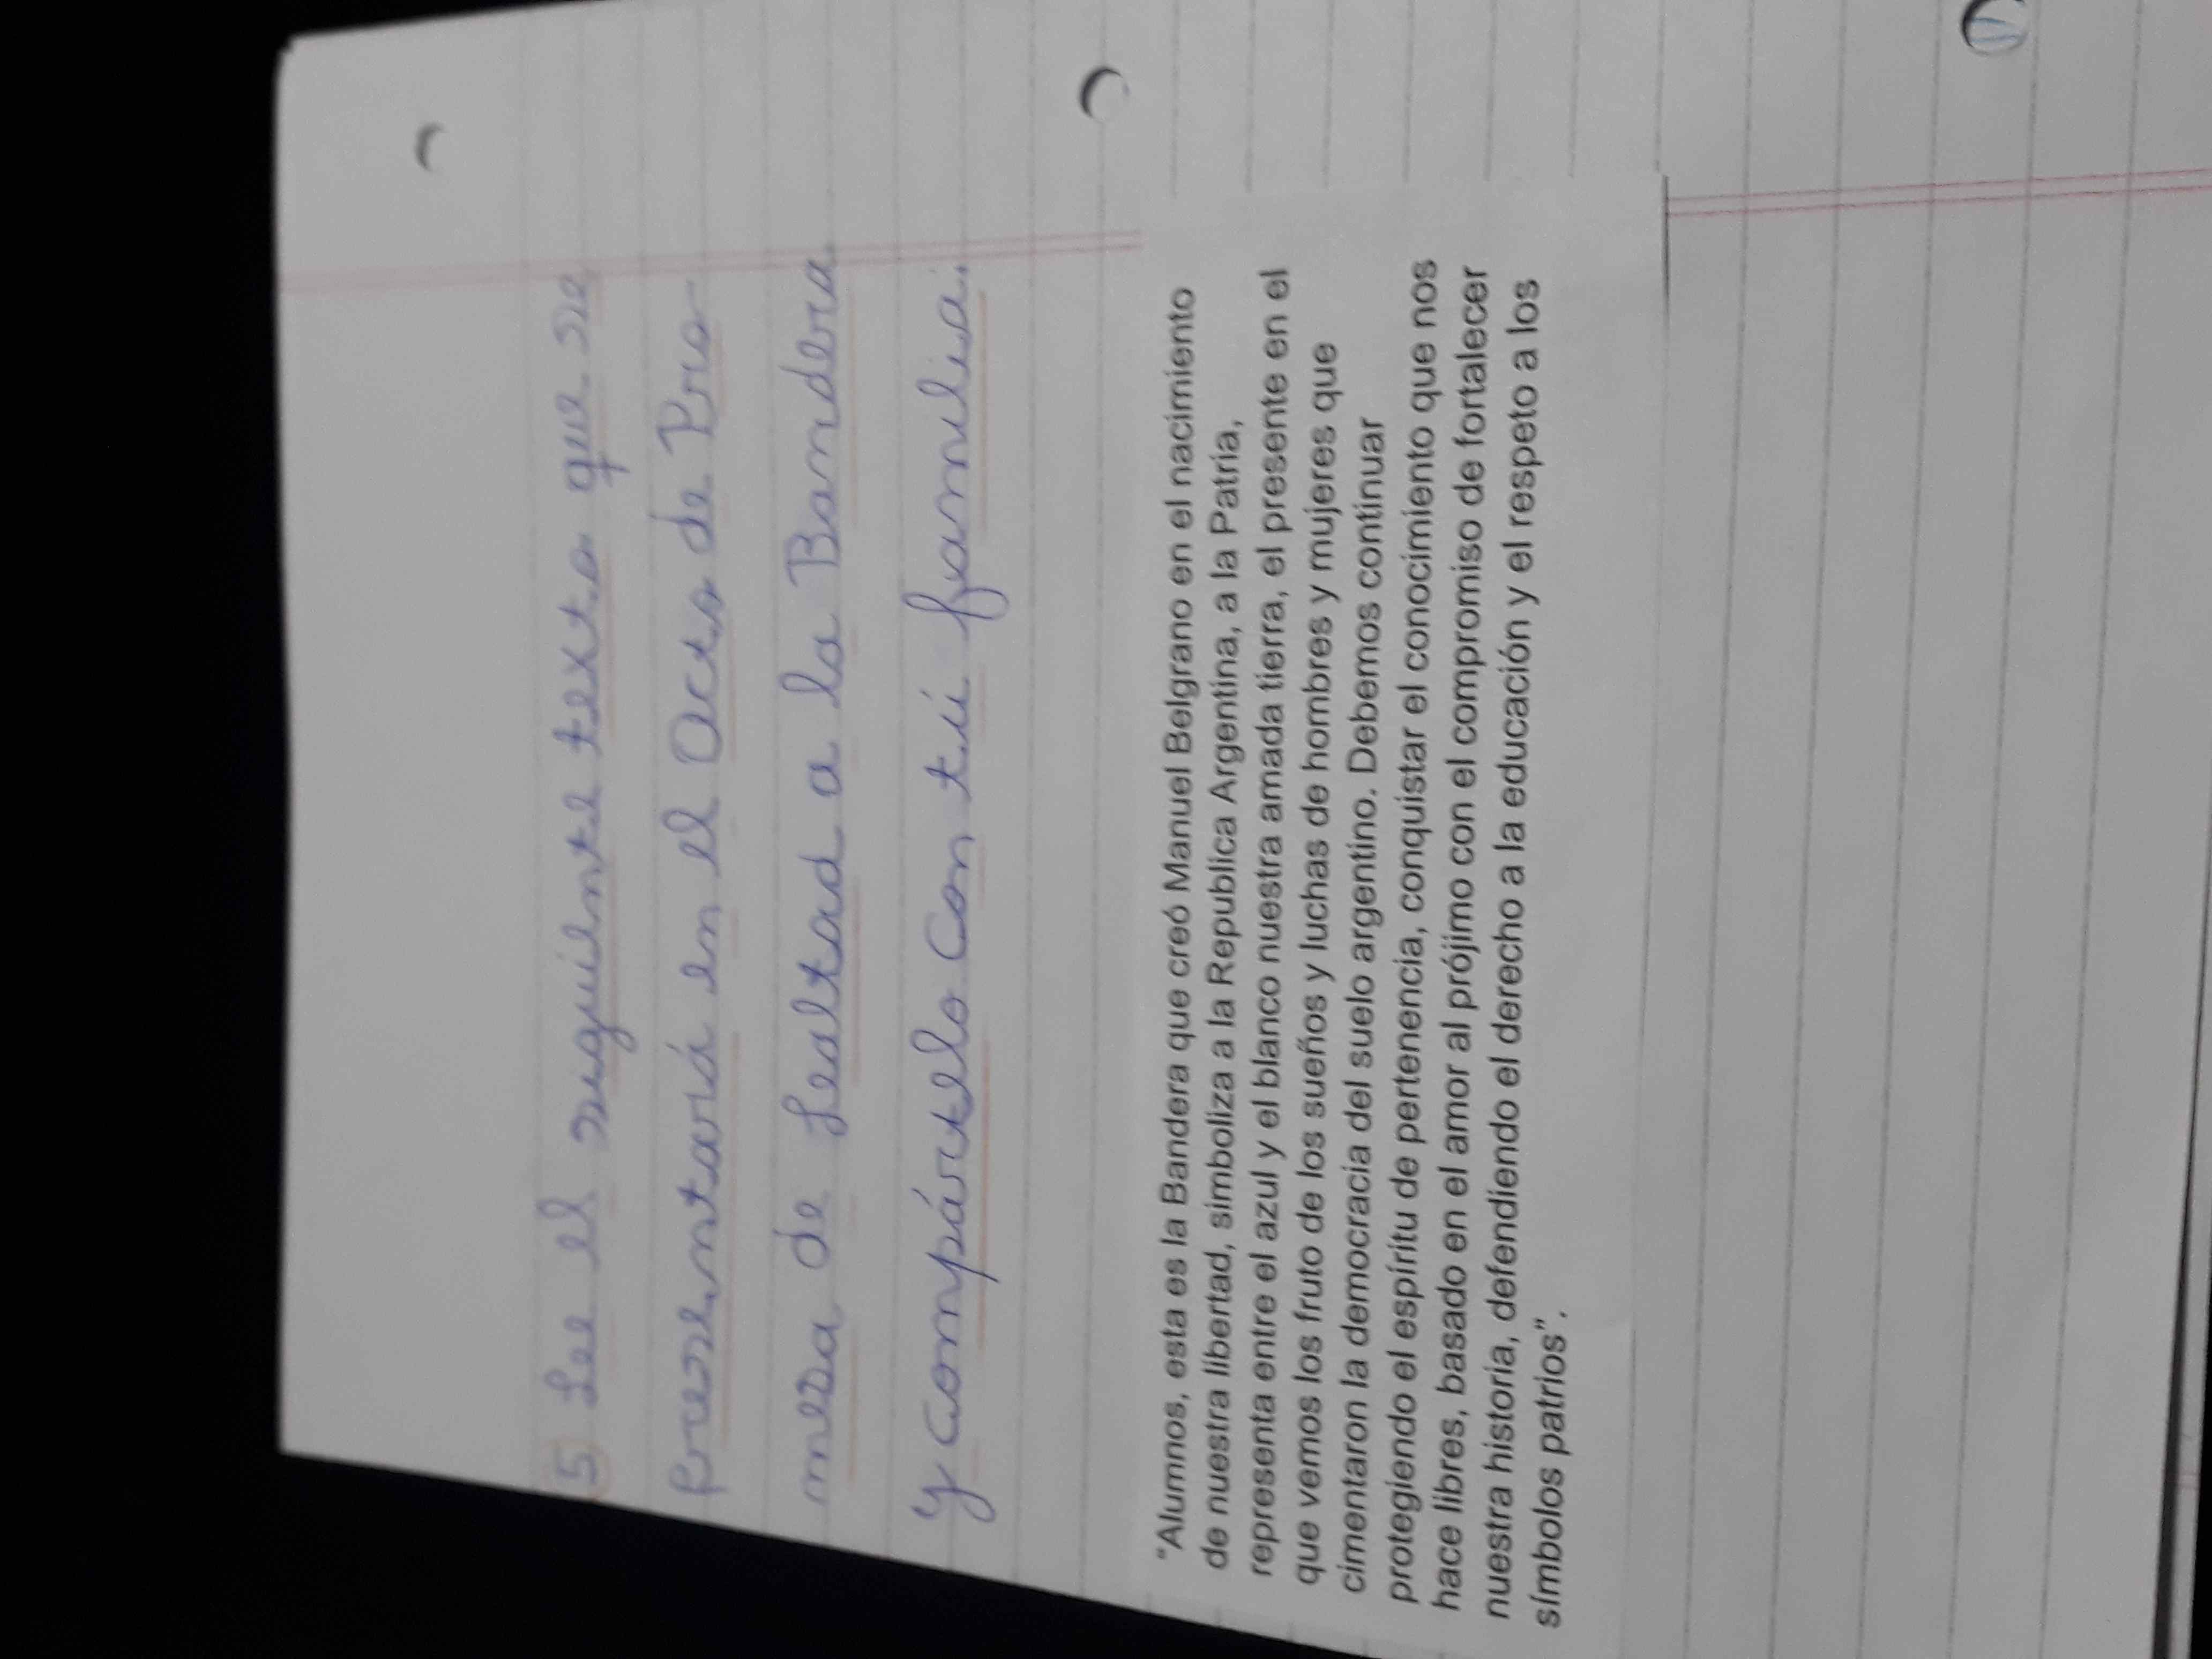 5) Lee el siguiente texto que se
presentará en el Acto de Pro-
mesa de Lealtad a la Bandera
y compártelo con tú familia.
"Alumnos, esta es la Bandera que creó Manuel Belgrano en el nacimiento
de nuestra libertad, simboliza a la Republica Argentina, a la Patria,
representa entre el azul y el blanco nuestra amada tierra, el presente en el
que vemos los fruto de los sueños y luchas de hombres y mujeres que
cimentaron la democracia del suelo argentino. Debemos continuar
protegiendo el espíritu de pertenencia, conquistar el conocimiento que nos
hace libres, basado en el amor al prójimo con el compromiso de fortalecer
nuestra historia, defendiendo el derecho a la educación y el respeto a los
símbolos patrios".